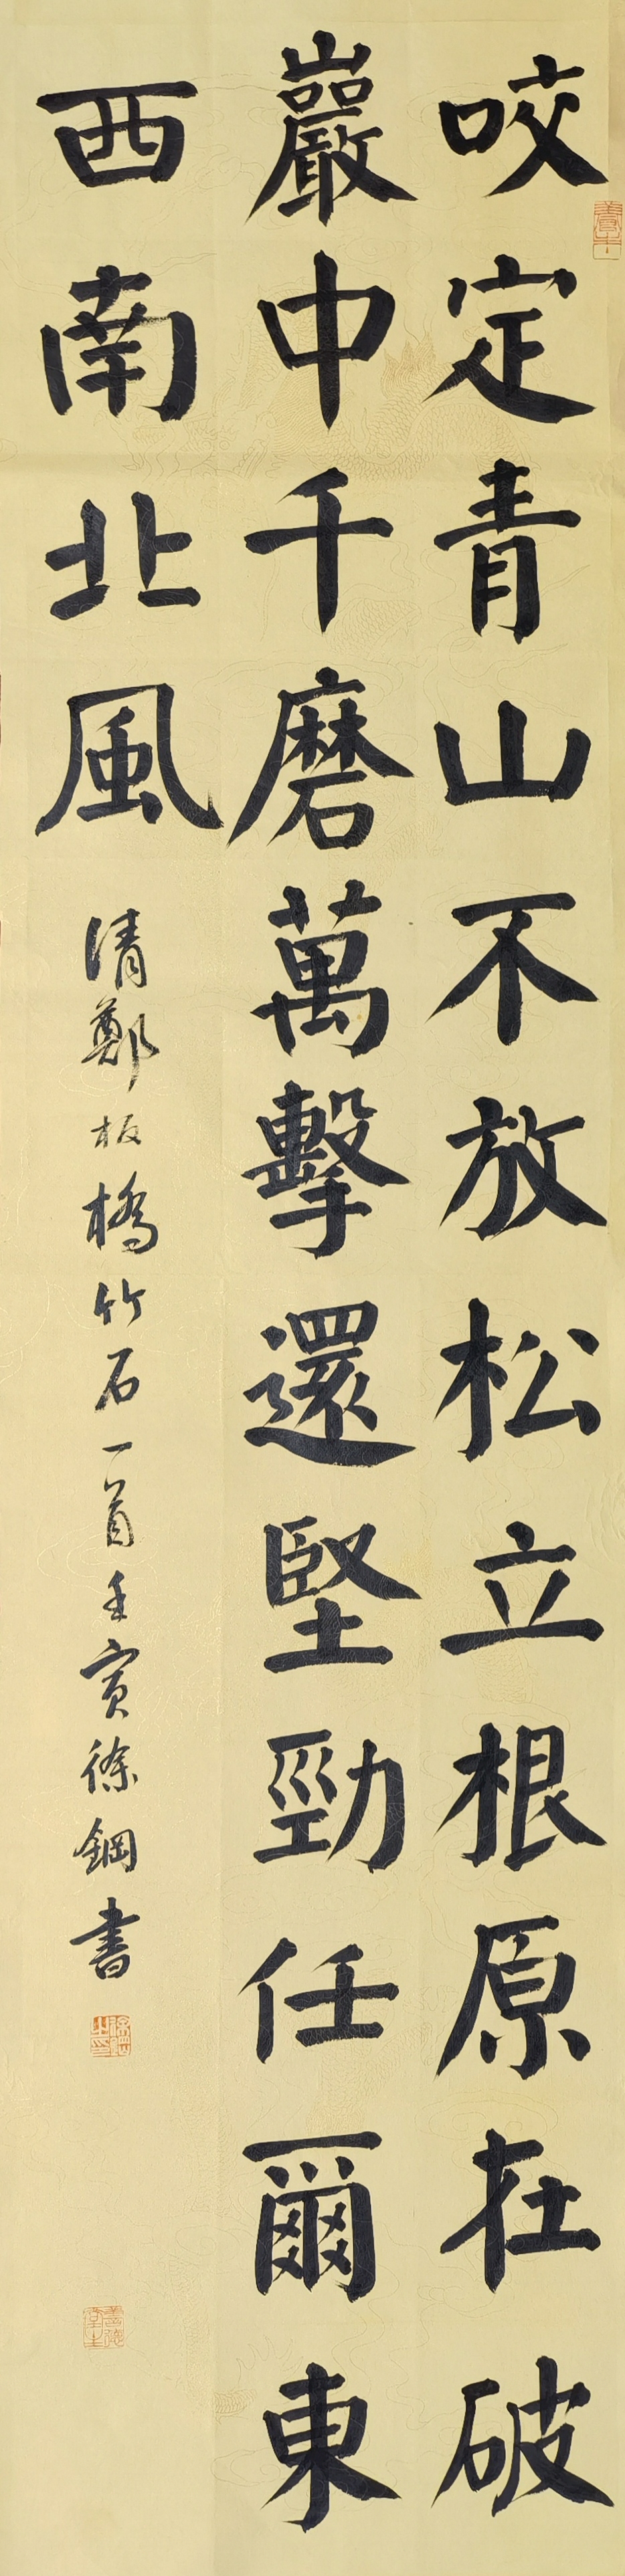 咬定青山不放松立根原在破
巖中千磨萬擊還堅勁任爾東
西南北風
清鄭板橋竹石一首壬寅徐鋼書